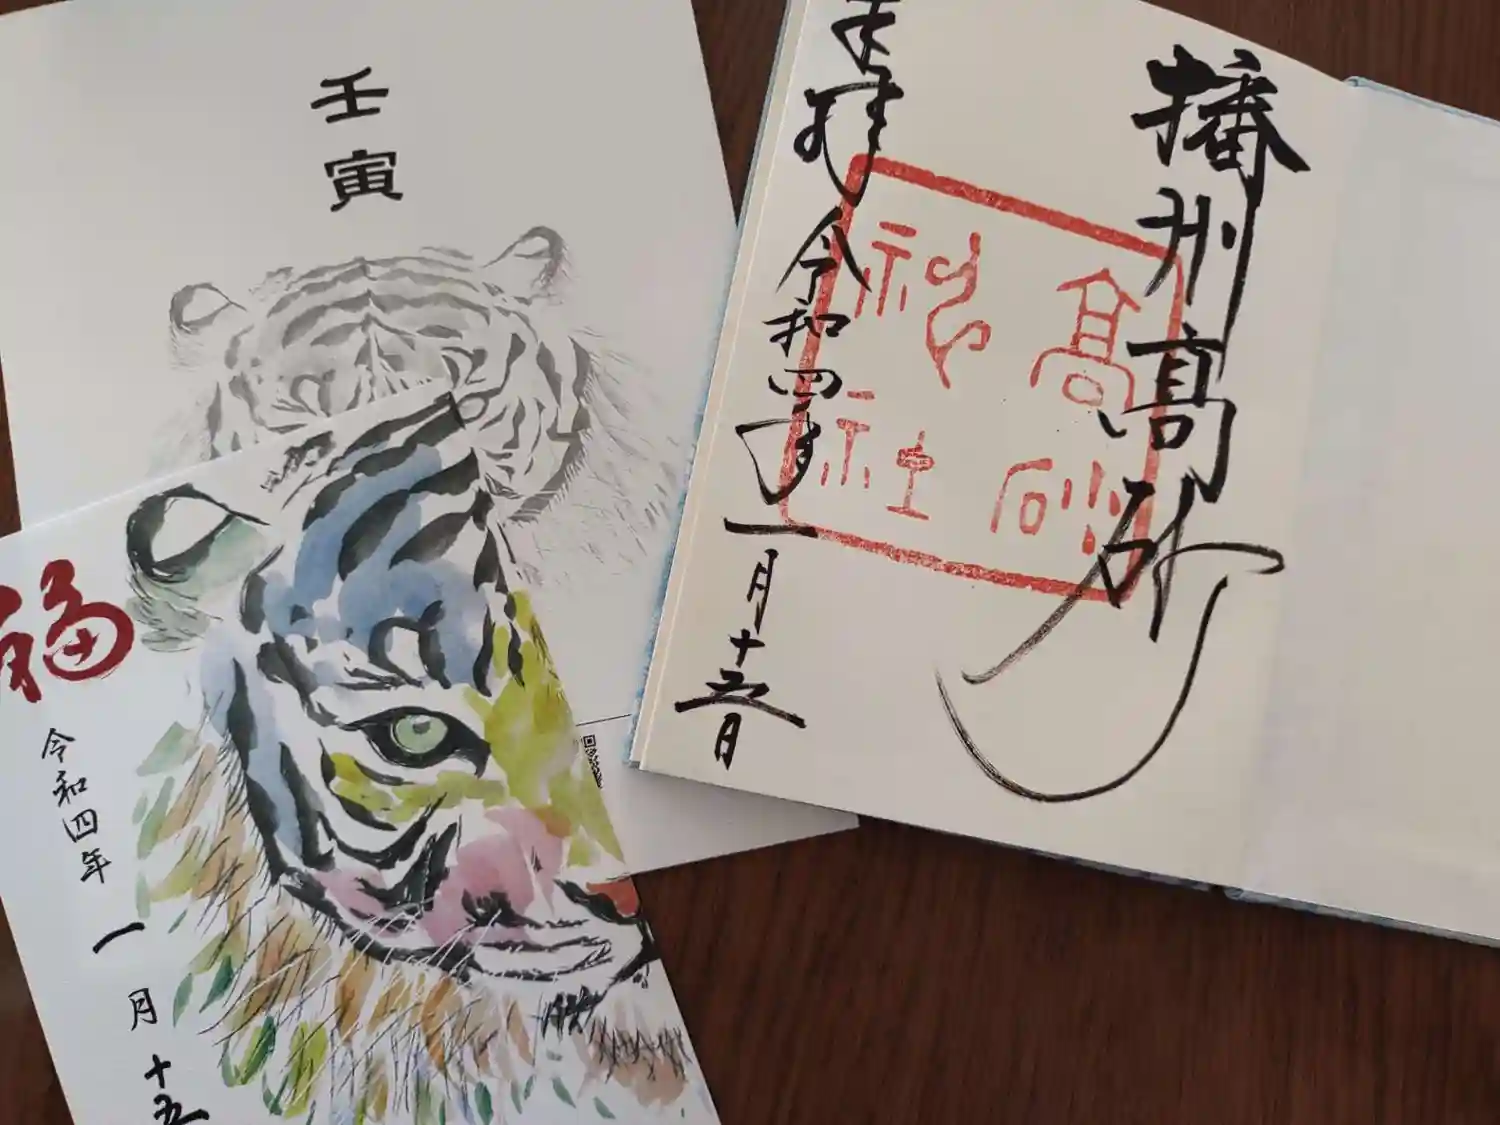 壬寅
福
令和四年
一月十五
播州高砂
髙砂
神社
奉拝 令和四年一月十五日